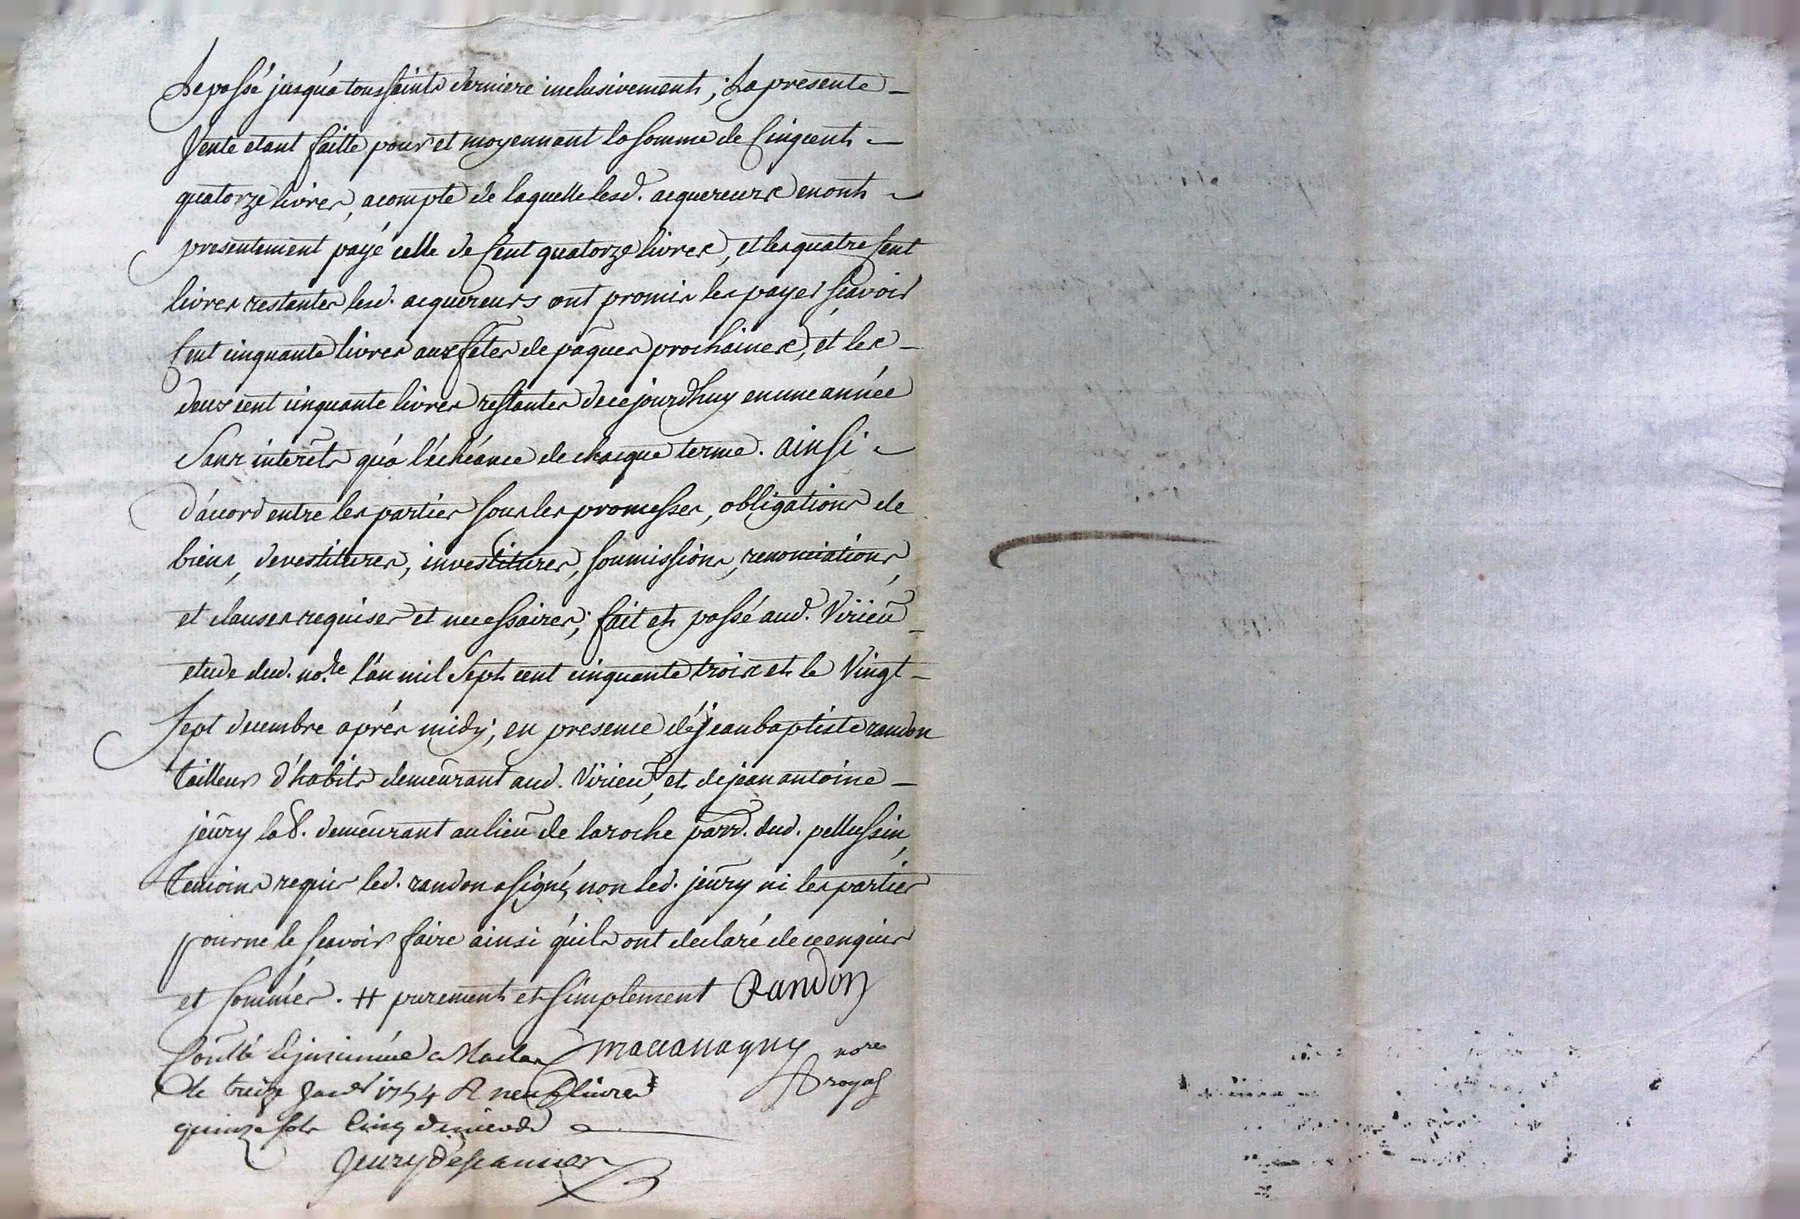 Le passé jusqu'a toussaints derniere inclusivement ; La presente
Vente etant faitte pour et moyennant la somme de Cinqcent
quatorze livres, acompte de laquelle lesd. acquereurs en ont
presentement payé celle de Cent quatorze livres, et les quatre Cent
livres restantes lesd. acquereurs ont promis les payer sçavoir
Cent cinquante livres aux fêtes de pâques prochaines, et les
deux cent cinquante livres restantes de ce jourd'huy en une année
Sans interêts qu'a l'échéance de chaque terme. ainsi
d'accord entre les parties sous les promesses, obligations de
biens, devestitures, investitures, soumissions, renonciations,
et clauses requises et necessaires ; fait et passé aud. Virieu
etude dud. no.re l'an mil Sept cent cinquante trois et le Vingt
Sept decembre aprés midy ; en presence de jean baptiste randon
tailleur d'habits demeurant aud. Virieu, et de jean antoine
jeury lab. demeurant au lieu de laroche parr. dud. pellussin,
temoins requis led. randon a signé, non led. jeury ni les parties
pour ne le sçavoir faire ainsi qu'ils ont declaré de ce enquis
et sommés. # purement et simplement Randon
Conllé Et insinuée a Maclas
no.re
royal
le treize Janv.r 1754 R neuf livres
quinze sols Cinq deniers